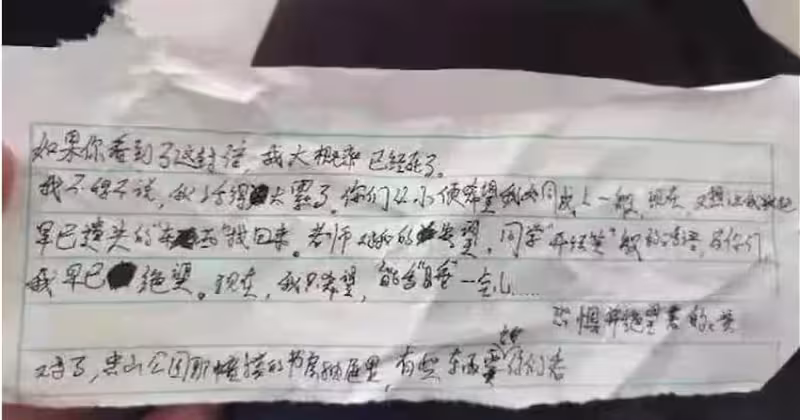 如果你看到了这封信，我大概率已经死了。
我不得不说，我活得太累了。你们从小便希望我同成人一般，现在，又想让我把
早已遗失的“东西”找回来。老师对我的失望，同学“开玩笑”般的，与你们，
我早已绝望。现在，我只希望，能舍“睡”一会儿……
恐惧并绝望着的
对了，公园那幢楼的书房抽屉里，有些东西要给你们看